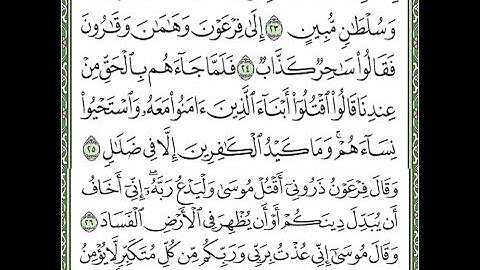 وَسُلْطَٰنٍ مُّبِينٍ ٢٣ إِلَىٰ فِرْعَوْنَ وَهَٰمَٰنَ وَقَٰرُونَ
فَقَالُوا۟ سَٰحِرٌ كَذَّابٌ ٢٤ فَلَمَّا جَآءَهُم بِٱلْحَقِّ مِنْ
عِندِنَا قَالُوا۟ ٱقْتُلُوٓا۟ أَبْنَآءَ ٱلَّذِينَ ءَامَنُوا۟ مَعَهُۥ وَٱسْتَحْيُوا۟
نِسَآءَهُمْ ۚ وَمَا كَيْدُ ٱلْكَٰفِرِينَ إِلَّا فِى ضَلَٰلٍ ٢٥
وَقَالَ فِرْعَوْنُ ذَرُونِىٓ أَقْتُلْ مُوسَىٰ وَلْيَدْعُ رَبَّهُۥٓ ۖ إِنِّىٓ أَخَافُ
أَن يُبَدِّلَ دِينَكُمْ أَوْ أَن يُظْهِرَ فِى ٱلْأَرْضِ ٱلْفَسَادَ ٢٦
وَقَالَ مُوسَىٰٓ إِنِّى عُذْتُ بِرَبِّى وَرَبِّكُم مِّن كُلِّ مُتَكَبِّرٍ لَّا يُؤْمِنُ